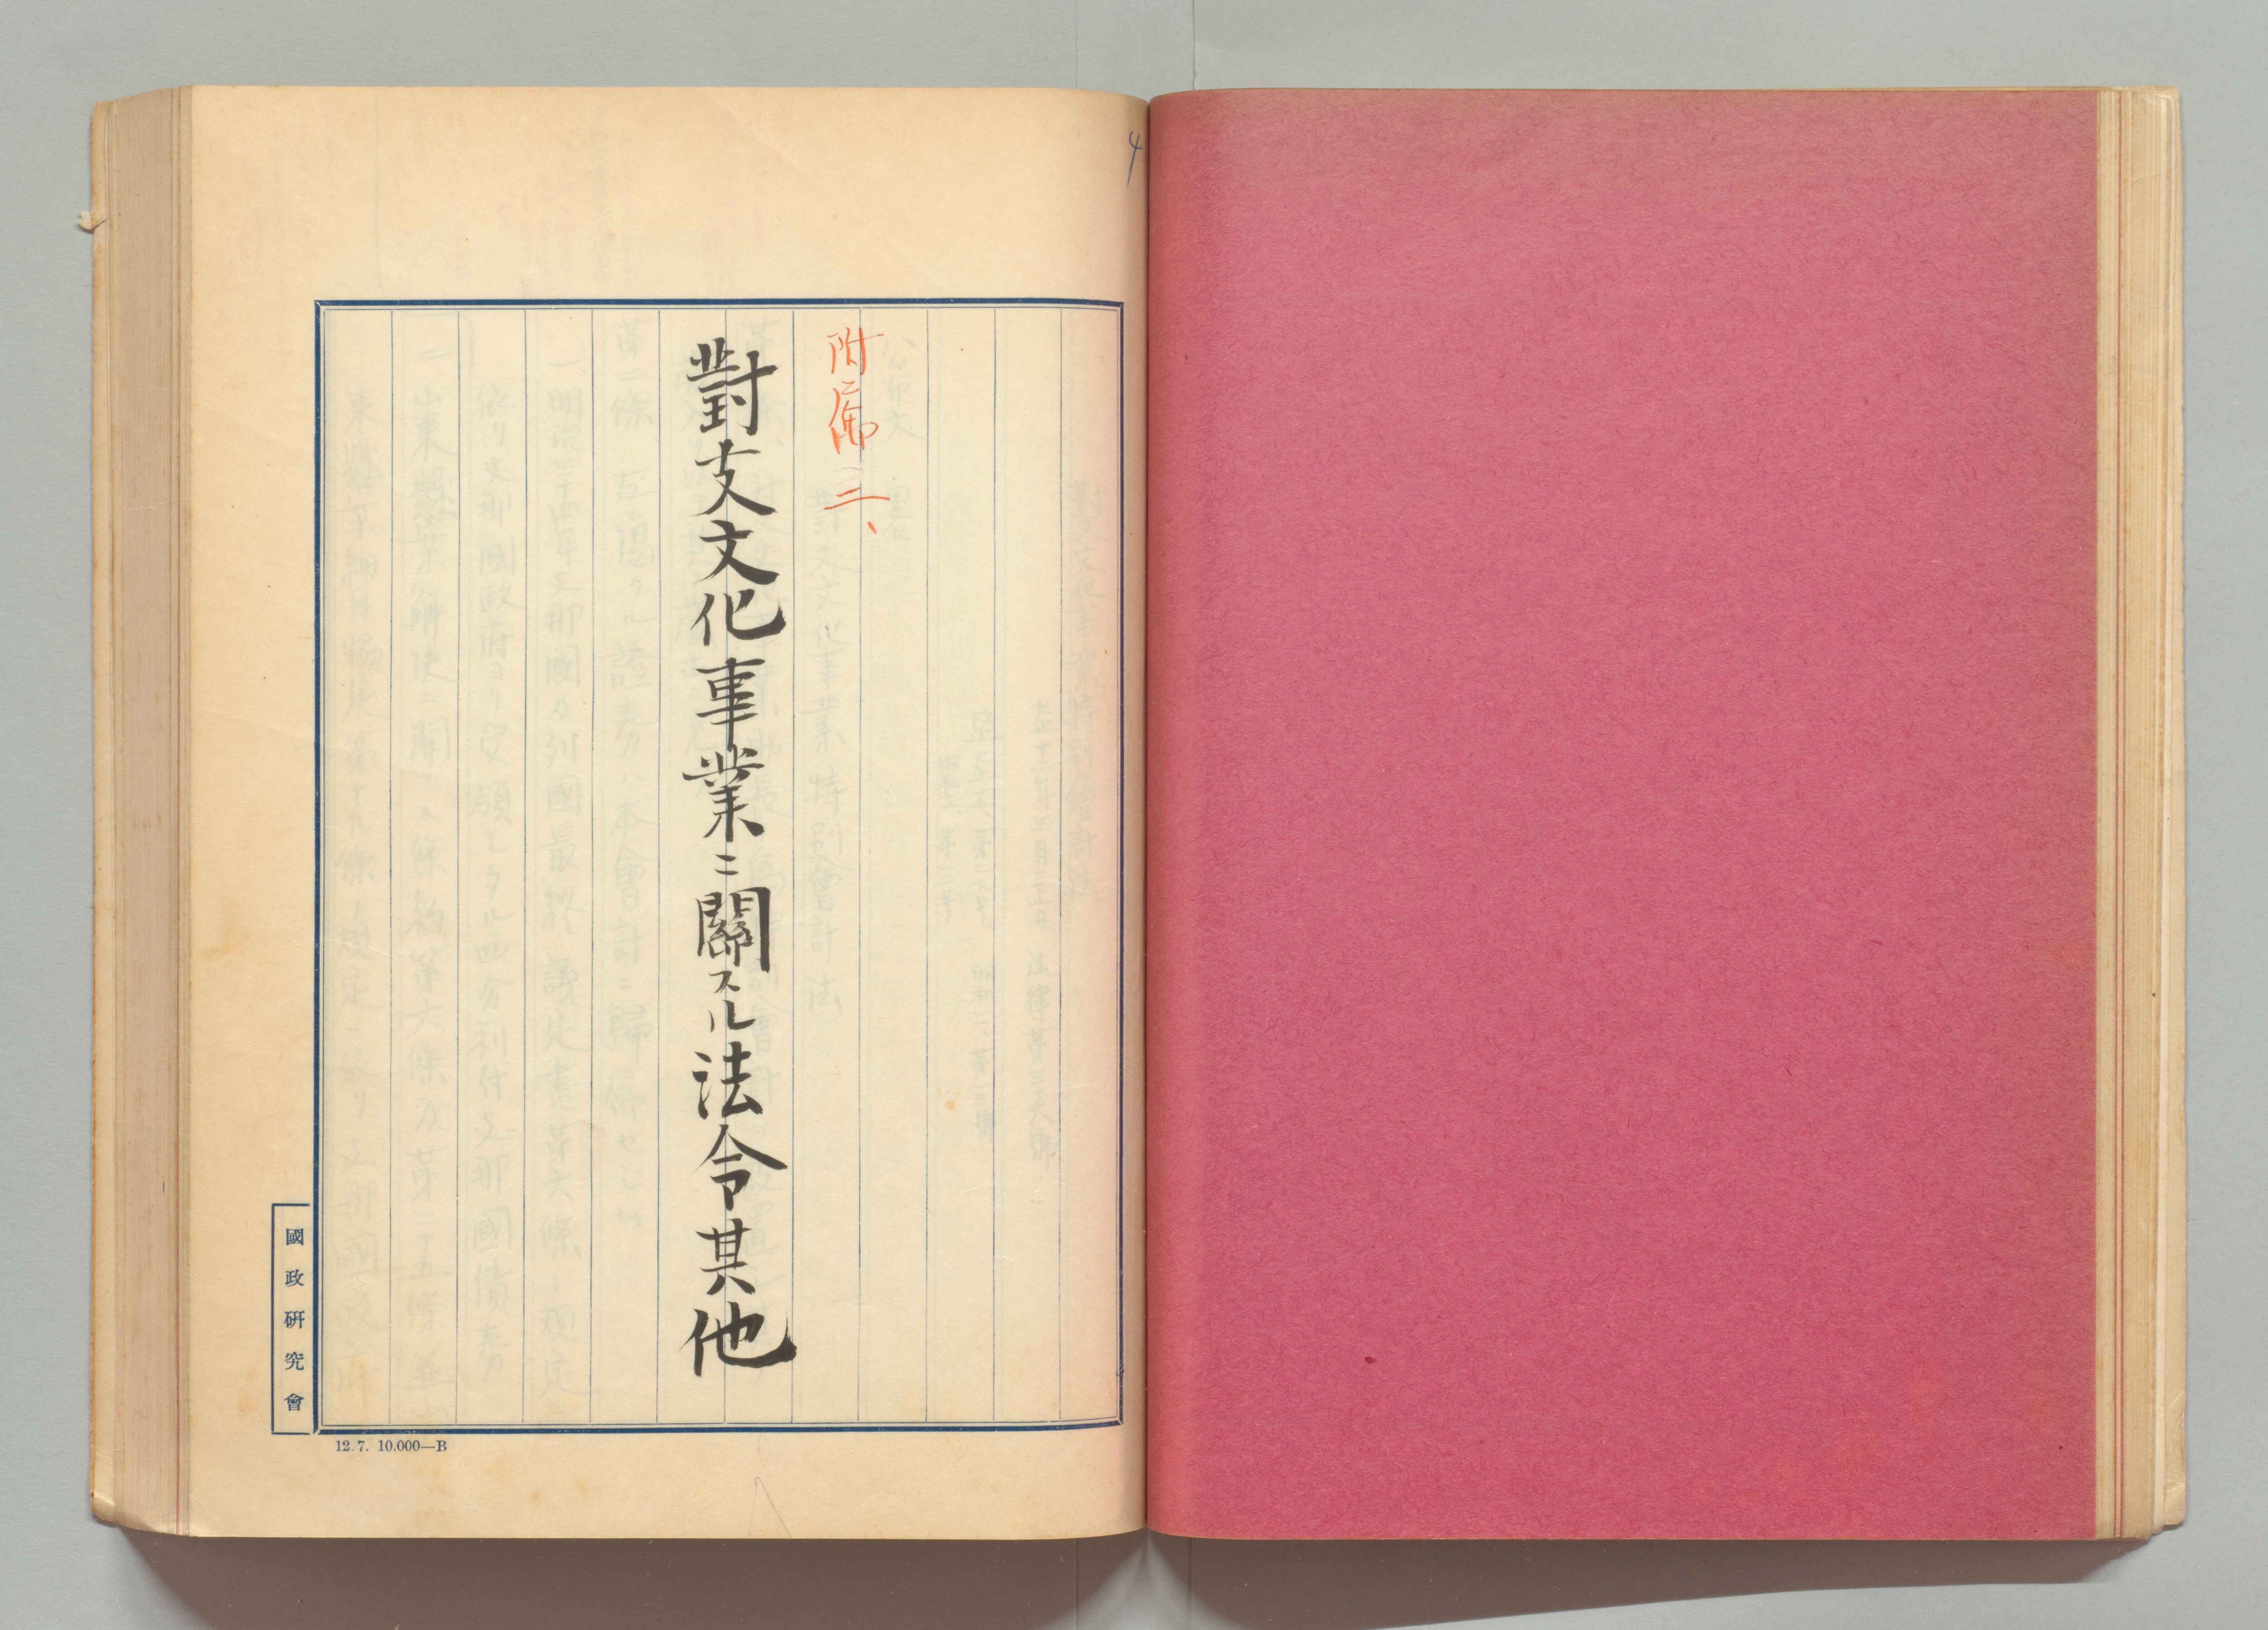 4
附属 二、
對支文化事業ニ關スル法令其他
國政研究會
12.7. 10.000—B